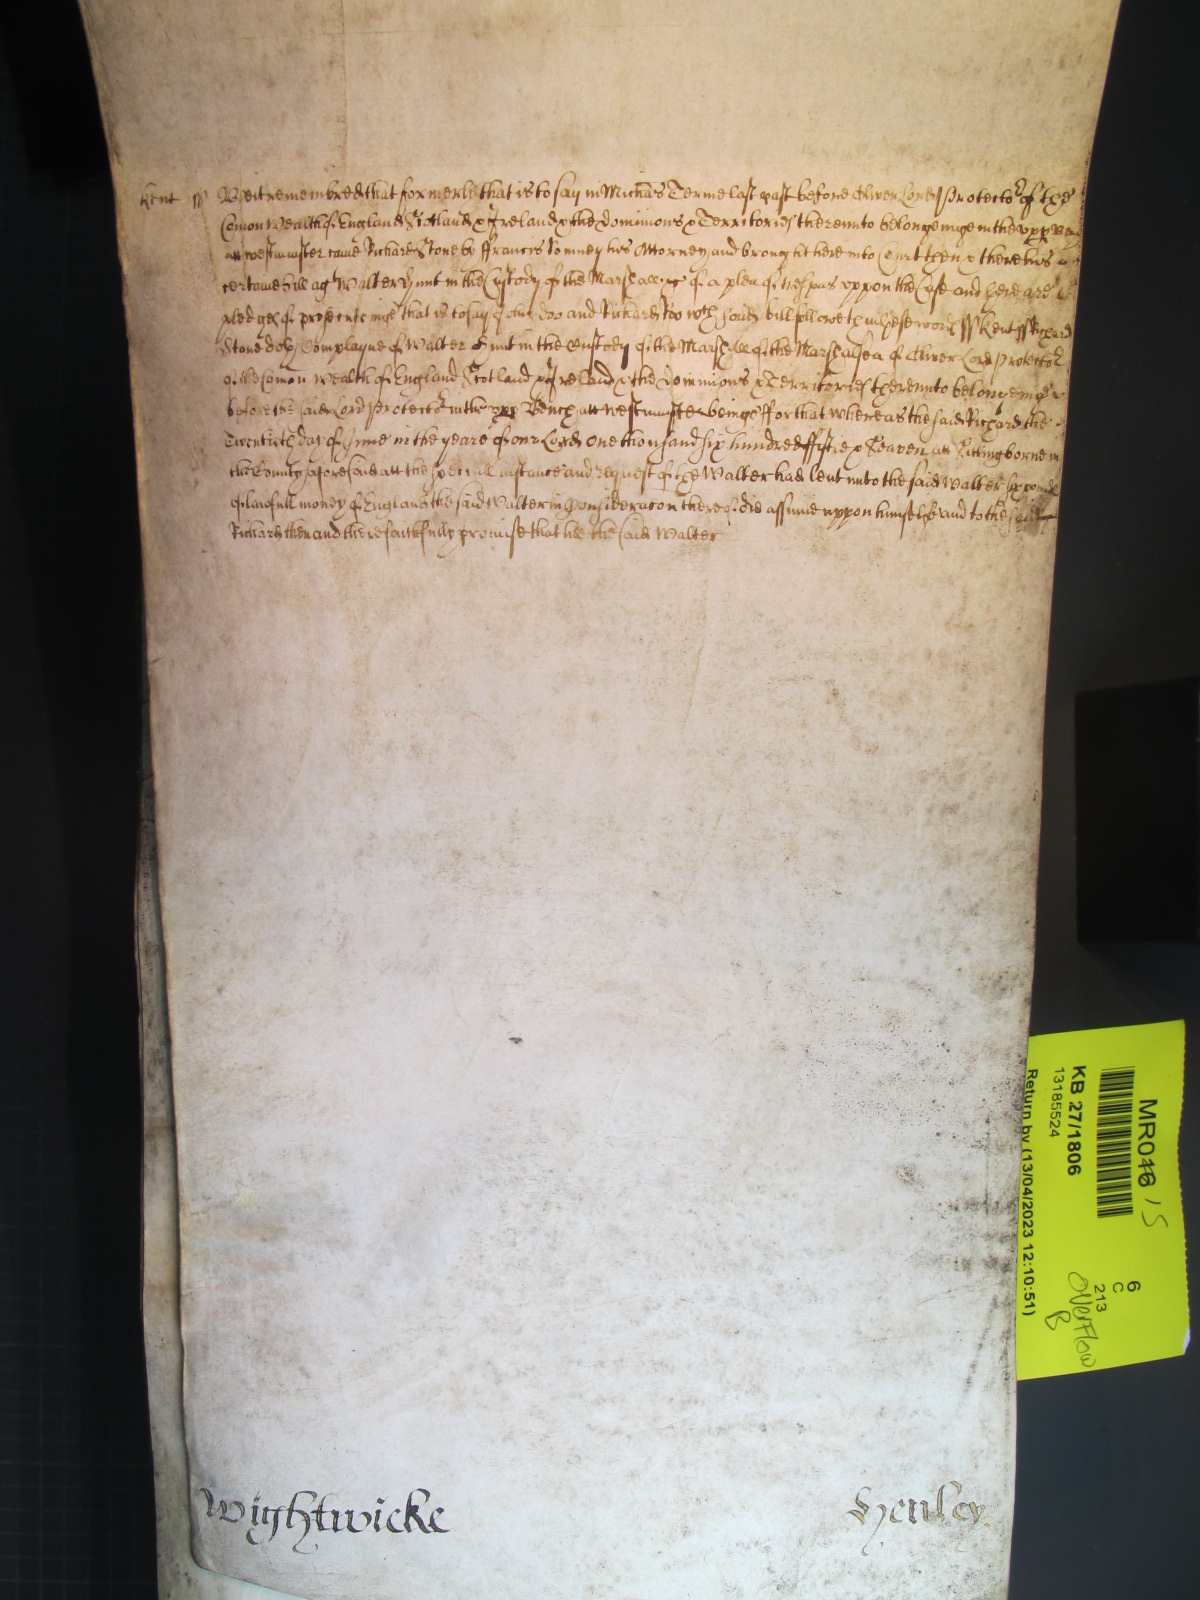 Kent ss Be it remembred that formerly that is to say in Michās Terme last past before Oliver Lord Protector of the
Comon Wealth of England Scotland & Ireland & the Dominions & Territories thereunto belonginge in the upp Ben
att Westminster came Richard Stone by ffrancis Bonney his Attorney and brought here into Court then & there his
certaine bill ag Walter Hunt in the Custody of the Marshall &c of a plea of trespas uppon the Case and there are
pledges of prosecutinge that is to say John Doo and Richard Roo wch said bill followeth in these words ss Kent ss Richard
Stone doth Complayne of Walter Hunt in the Custody of the Marshall of the Marshalsea of Oliver Lord Protector
of the Comon Wealth of England Scotland & Ireland & the Dominions & Territories thereunto belonginge
before the said Lord Protector in the upp Bench att Westminster beinge ffor that whereas the said Richard the
Twentieth day of June in the yeare of our Lord One thousand six hundred ffiftie & Seaven att Sittingborne in
the County aforesaid att the speciall instance and request of the Walter had lent unto the said Walter six pounds
of lawfull money of England the said Walter in Consideracon thereof did assume uppon himselfe and to the said
Richard then and there faithfully promise that hee the said Walter
Wightwicke Henley
MR046 15
KB 27/1806
13185524
Return by (13/04/2023 12:10:51)
6
C
213
Overflow
B